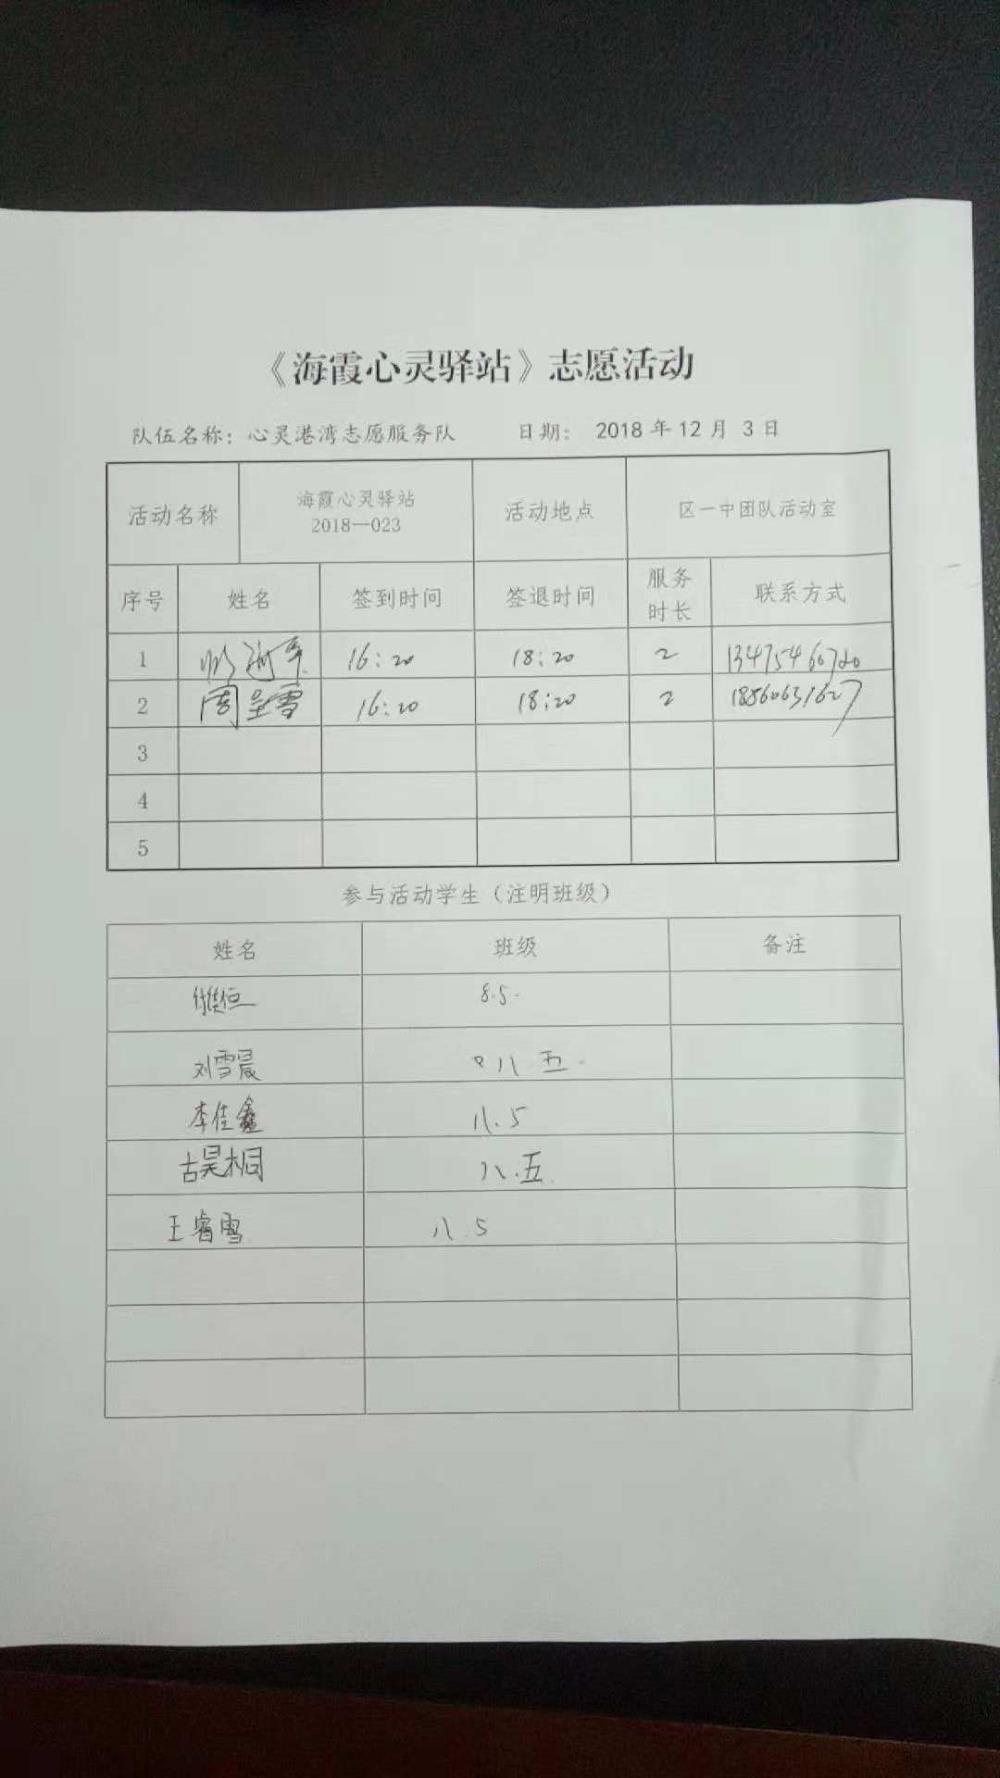 《海霞心灵驿站》志愿活动
队伍名称：心灵港湾志愿服务队 日期： 2018 年 12 月 3 日
活动名称 海霞心灵驿站 2018—023 活动地点 区一中团队活动室
序号 姓名 签到时间 签退时间 服务时长 联系方式
1 16:20 18:20 2
2 周呈雪 16:20 18:20 2 18560631627
3
4
5
参与活动学生（注明班级）
姓名 班级 备注
8.5.
刘雪晨 八 五.
李佳鑫 八.5
古昊桐 八.五
王睿雪 八.5